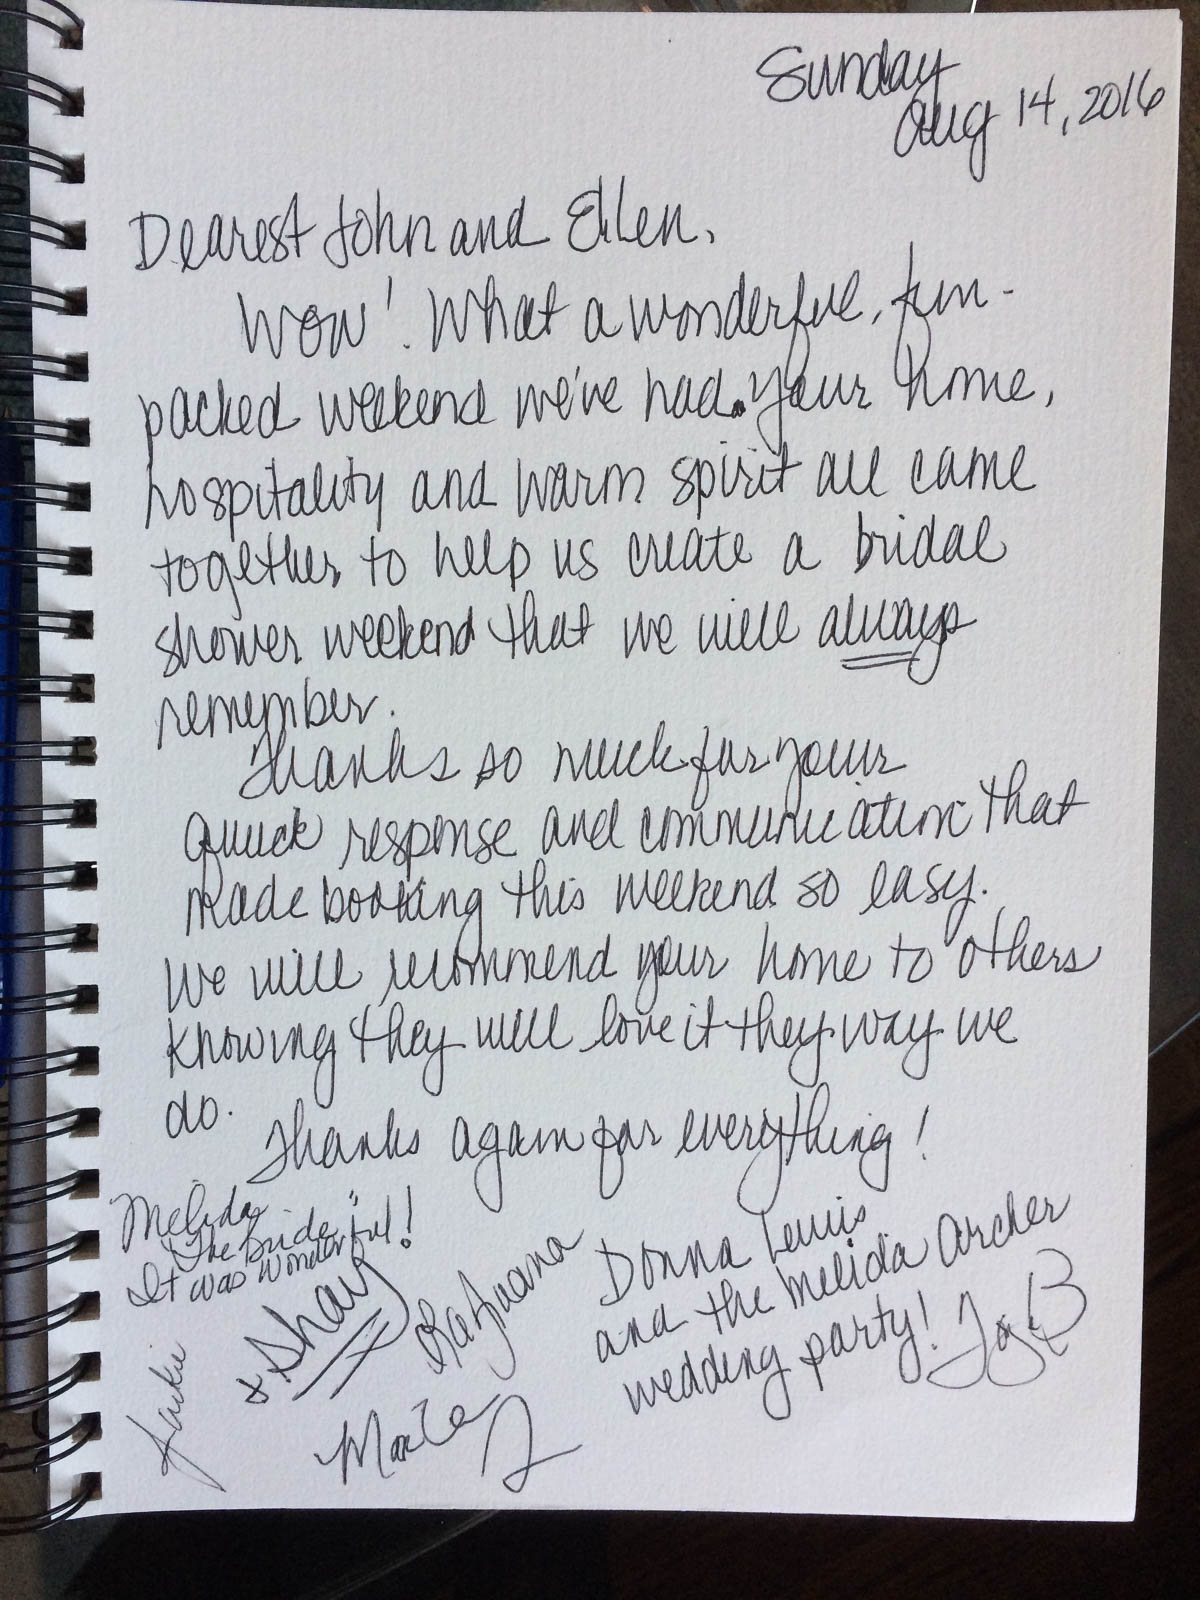 Sunday
Aug 14, 2016
Dearest John and Ellen,
Wow! What a wonderful, fun-
packed weekend we've had. Your home,
hospitality and warm spirit all came
together to help us create a bridal
shower weekend that we will always
remember.
Thanks so much for your
quick response and communication that
made booking this weekend so easy.
We will recommend your home to others
knowing they will love it they way we
do.
Thanks again for everything!
Melida
"The Bride"
It was wonderful!
Shay
RaJuana
Donna Lewis
and the Melida Archer
wedding party!
Jackie